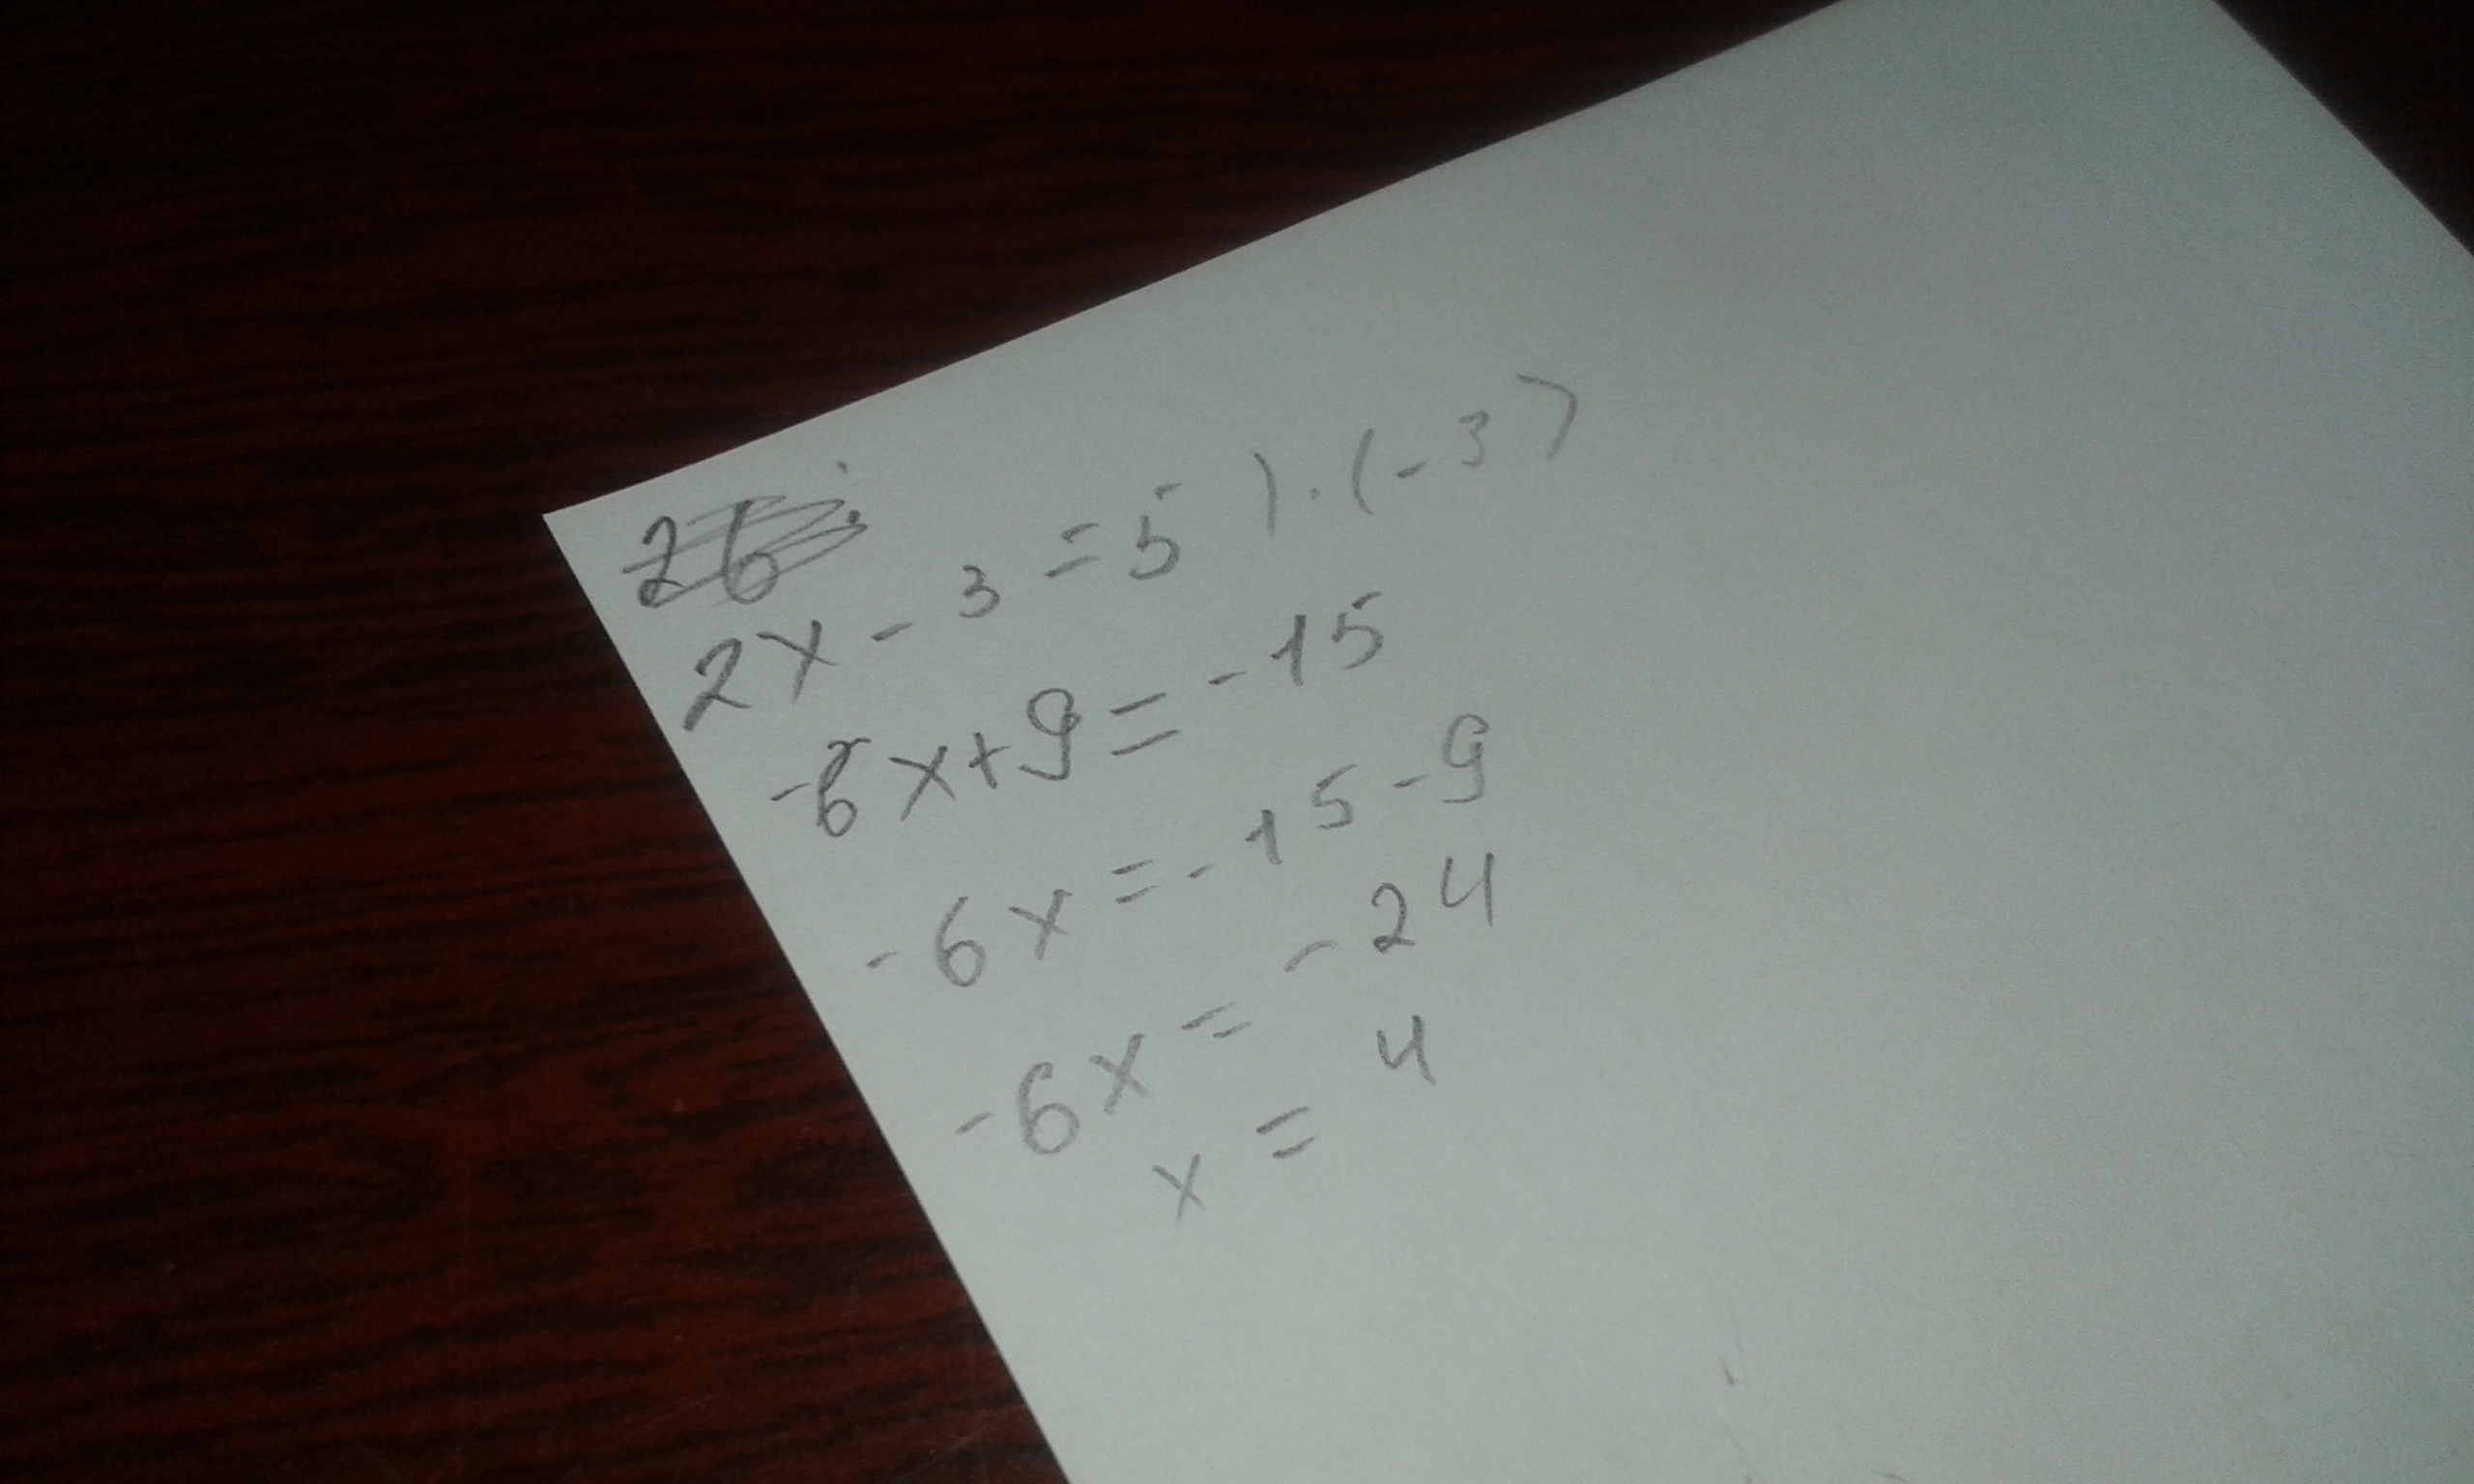 26
2x - 3 = 5 ) · (-3)
-6x+9 = -15
-6x = -15-9
-6x = -24
x = 4